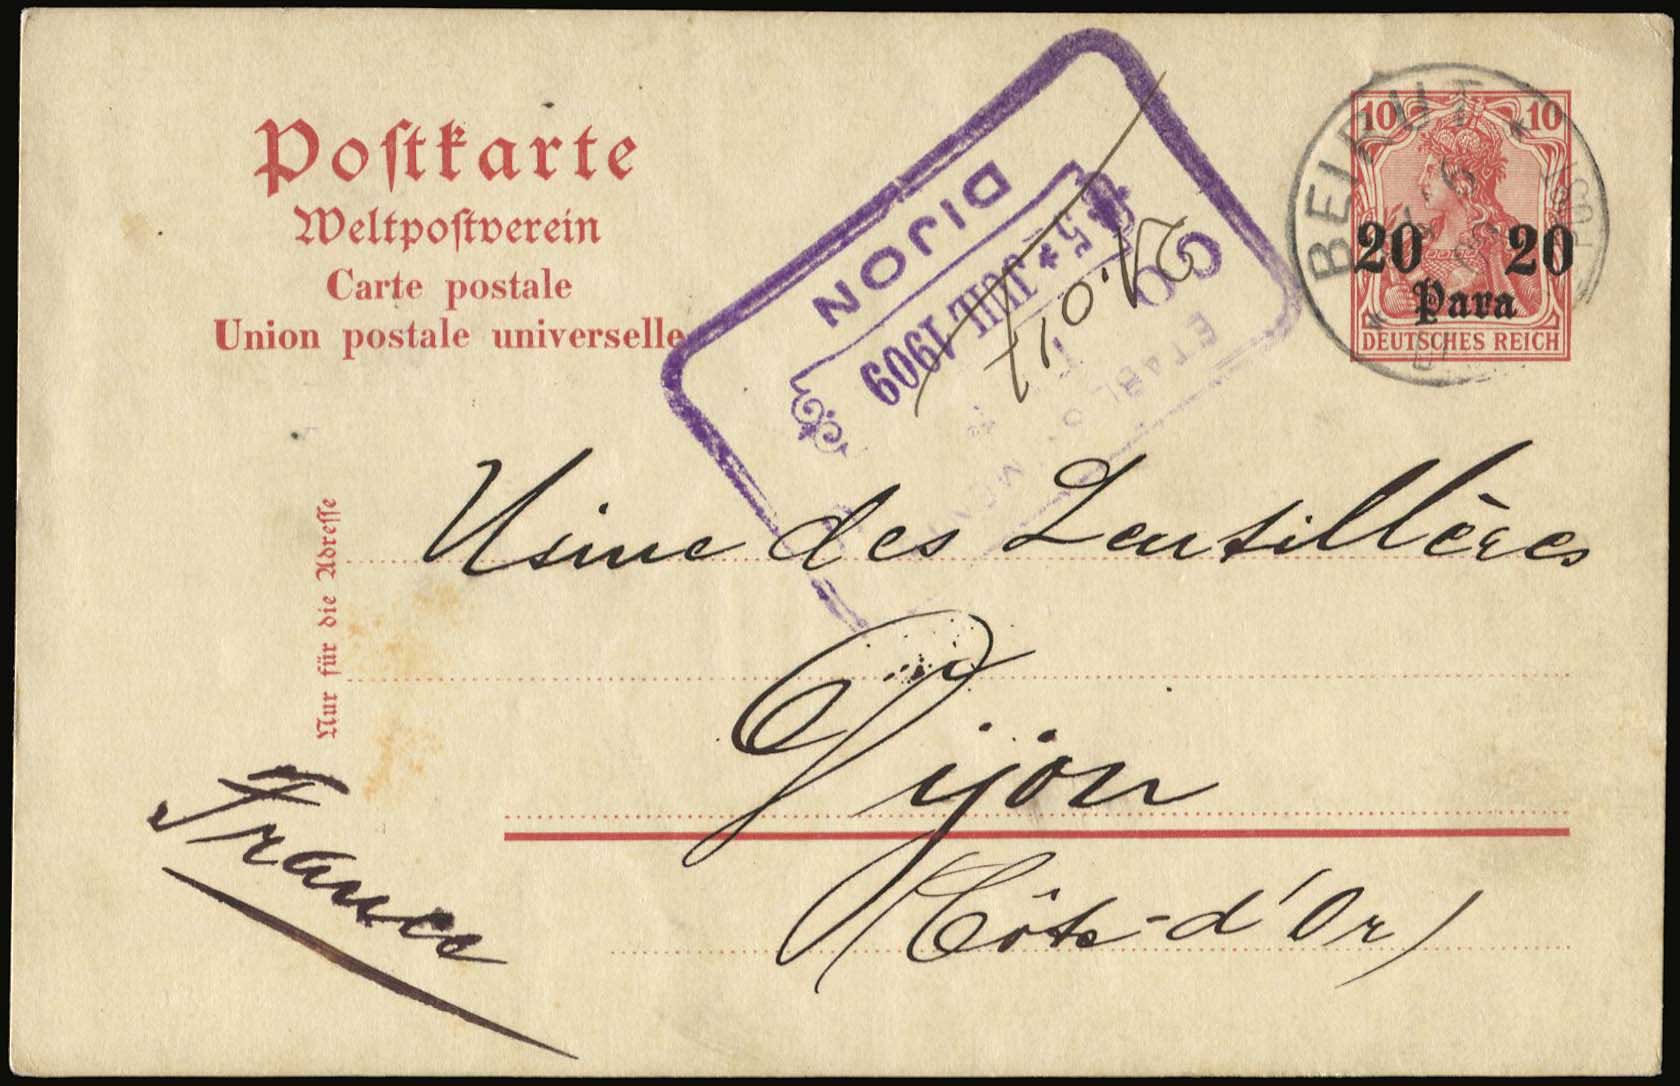 Postkarte
Weltpostverein
Carte postale
Union postale universelle
Nur für die Adresse
10 10
20 20
Para
DEUTSCHES REICH
BEIRUT
DIJON
5 * JUIL 1909
Usine des Lentillères
Dijon
(Côte-d'Or)
France